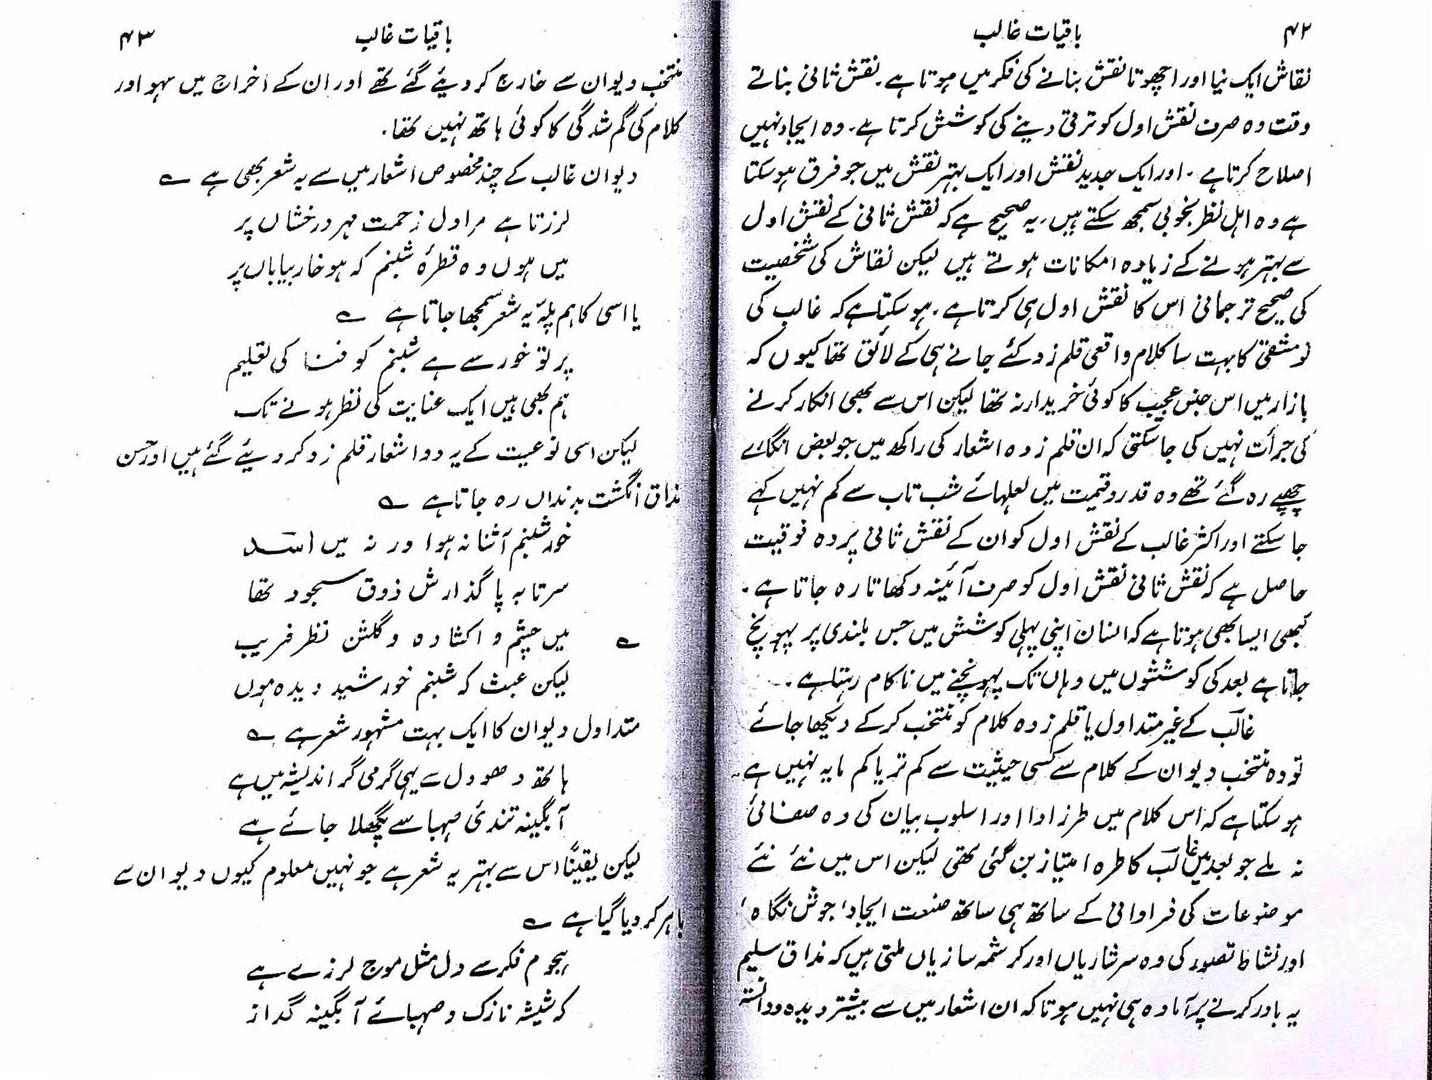 ۴۲
باقیات غالب
نقاش ایک نیا اور اچھوتا نقش بنانے کی فکر میں ہوتا ہے۔ نقش ثانی بناتے
وقت وہ صرف نقش اول کو ترقی دینے کی کوشش کرتا ہے۔ وہ ایجاد نہیں
اصلاح کرتا ہے۔ اور ایک جدید نقش اور ایک بہتر نقش میں جو فرق ہو سکتا
ہے وہ اہل نظر بخوبی سمجھ سکتے ہیں۔ یہ صحیح ہے کہ نقش ثانی کے نقش اول
سے بہتر ہونے کے زیادہ امکانات ہوتے ہیں لیکن نقاش کی شخصیت
کی صحیح ترجمانی اس کا نقش اول ہی کرتا ہے۔ ہو سکتا ہے کہ غالب کی
نو مشقی کا بہت سا کلام واقعی قلم زد کئے جانے ہی کے لائق تھا کیوں کہ
بازار میں اس جنس عجیب کا کوئی خریدار نہ تھا لیکن اس سے بھی انکار کرنے
کی جرأت نہیں کی جا سکتی کہ ان قلم زدہ اشعار کی راکھ میں جو بعض انگارے
چھپے رہ گئے تھے وہ قدر و قیمت میں لعلہائے شب تاب سے کم نہیں کہے
جا سکتے اور اکثر غالب کے نقش اول کو ان کے نقش ثانی پر وہ فوقیت
حاصل ہے کہ نقش ثانی نقش اول کو صرف آئینہ دکھاتا رہ جاتا ہے۔
کبھی ایسا بھی ہوتا ہے کہ انسان اپنی پہلی کوشش میں جس بلندی پر پہونچ
جاتا ہے بعد کی کوششوں میں وہاں تک پہونچنے میں ناکام رہتا ہے۔
غالب کے غیر متداول یا قلم زدہ کلام کو منتخب کرکے دیکھا جائے
تو وہ منتخب دیوان کے کلام سے کسی حیثیت سے کم تر یا کم مایہ نہیں ہے۔
ہو سکتا ہے کہ اس کلام میں طرز ادا اور اسلوب بیان کی وہ صفائی
نہ ملے جو بعد میں غالب کا طرہ امتیاز بن گئی تھی لیکن اس میں نئے نئے
موضوعات کی فراوانی کے ساتھ ہی ساتھ صنعت ایجاد، جوش نگاہ،
اور نشاط تصور کی وہ سرشاریاں اور کرشمہ سازیاں ملتی ہیں کہ مذاق سلیم
یہ باور کرنے پر آمادہ ہی نہیں ہوتا کہ ان اشعار میں سے بیشتر دیدہ و دانستہ
باقیات غالب
۴۳
منتخب دیوان سے خارج کر دیئے گئے تھے اور ان کے اخراج میں سہو اور
کلام کی گم شدگی کا کوئی ہاتھ نہیں تھا۔
دیوان غالب کے چند مخصوص اشعار میں سے یہ شعر بھی ہے ؎
لرزتا ہے مرا دل زحمت مہر درخشاں پر
میں ہوں وہ قطرۂ شبنم کہ ہو خار بیاباں پر
یا اسی کا ہم پلہ یہ شعر سمجھا جاتا ہے ؎
پرتو خور سے ہے شبنم کو فنا کی تعلیم
ہم بھی ہیں ایک عنایت کی نظر ہونے تک
لیکن اسی نوعیت کے یہ دو اشعار قلم زد کر دیئے گئے ہیں اور حسن
مذاق انگشت بدنداں رہ جاتا ہے ؎
خور شبنم آشنا نہ ہوا ورنہ میں اسد
سر تا بہ پا گذارش ذوق سجود تھا
؎ میں چشم وا کشادہ و گلشن نظر فریب
لیکن عبث کہ شبنم خورشید دیدہ ہوں
متداول دیوان کا ایک بہت مشہور شعر ہے ؎
ہاتھ دھو دل سے یہی گرمی گر اندیشہ میں ہے
آبگینہ تندیٔ صہبا سے پگھلا جائے ہے
لیکن یقیناً اس سے بہتر یہ شعر ہے جو نہیں معلوم کیوں دیوان سے
باہر کر دیا گیا ہے ؎
ہجوم فکر سے دل مثل موج لرزے ہے
کہ شیشہ نازک و صہبائے آبگینہ گداز